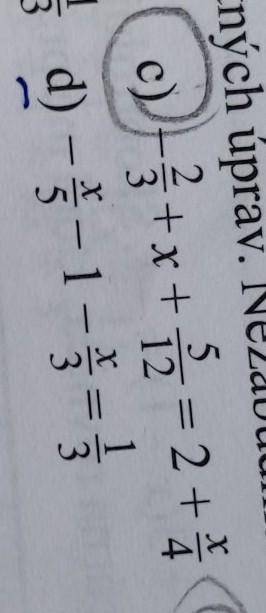 ných úprav.
c) -\frac{2}{3} + x + \frac{5}{12} = 2 + \frac{x}{4}
d) -\frac{x}{5} - 1 - \frac{x}{3} = \frac{1}{3}